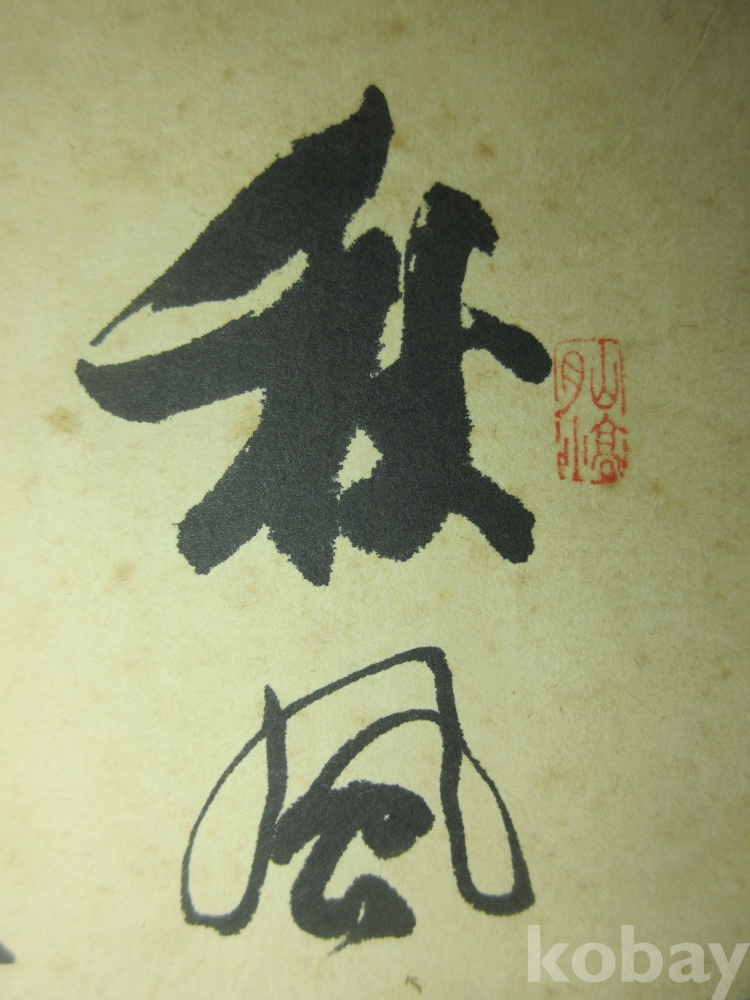 秋風
山高
月小
kobay